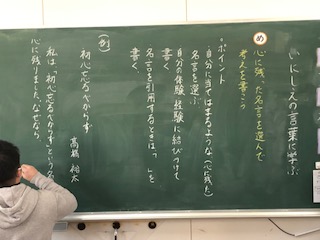 いにしえの言葉に学ぶ
め
心に残った名言を選んで
考えを書こう
・ポイント
・自分に当てはまるような(心に残った)
名言を選ぶ
・自分の体験、経験に結びつけて
書く。
・名言を引用するときは「 」を
書く。
(例)
初心忘るべからず
高橋 裕太
私は「初心忘るべからず」という
心に残りました。なぜなら